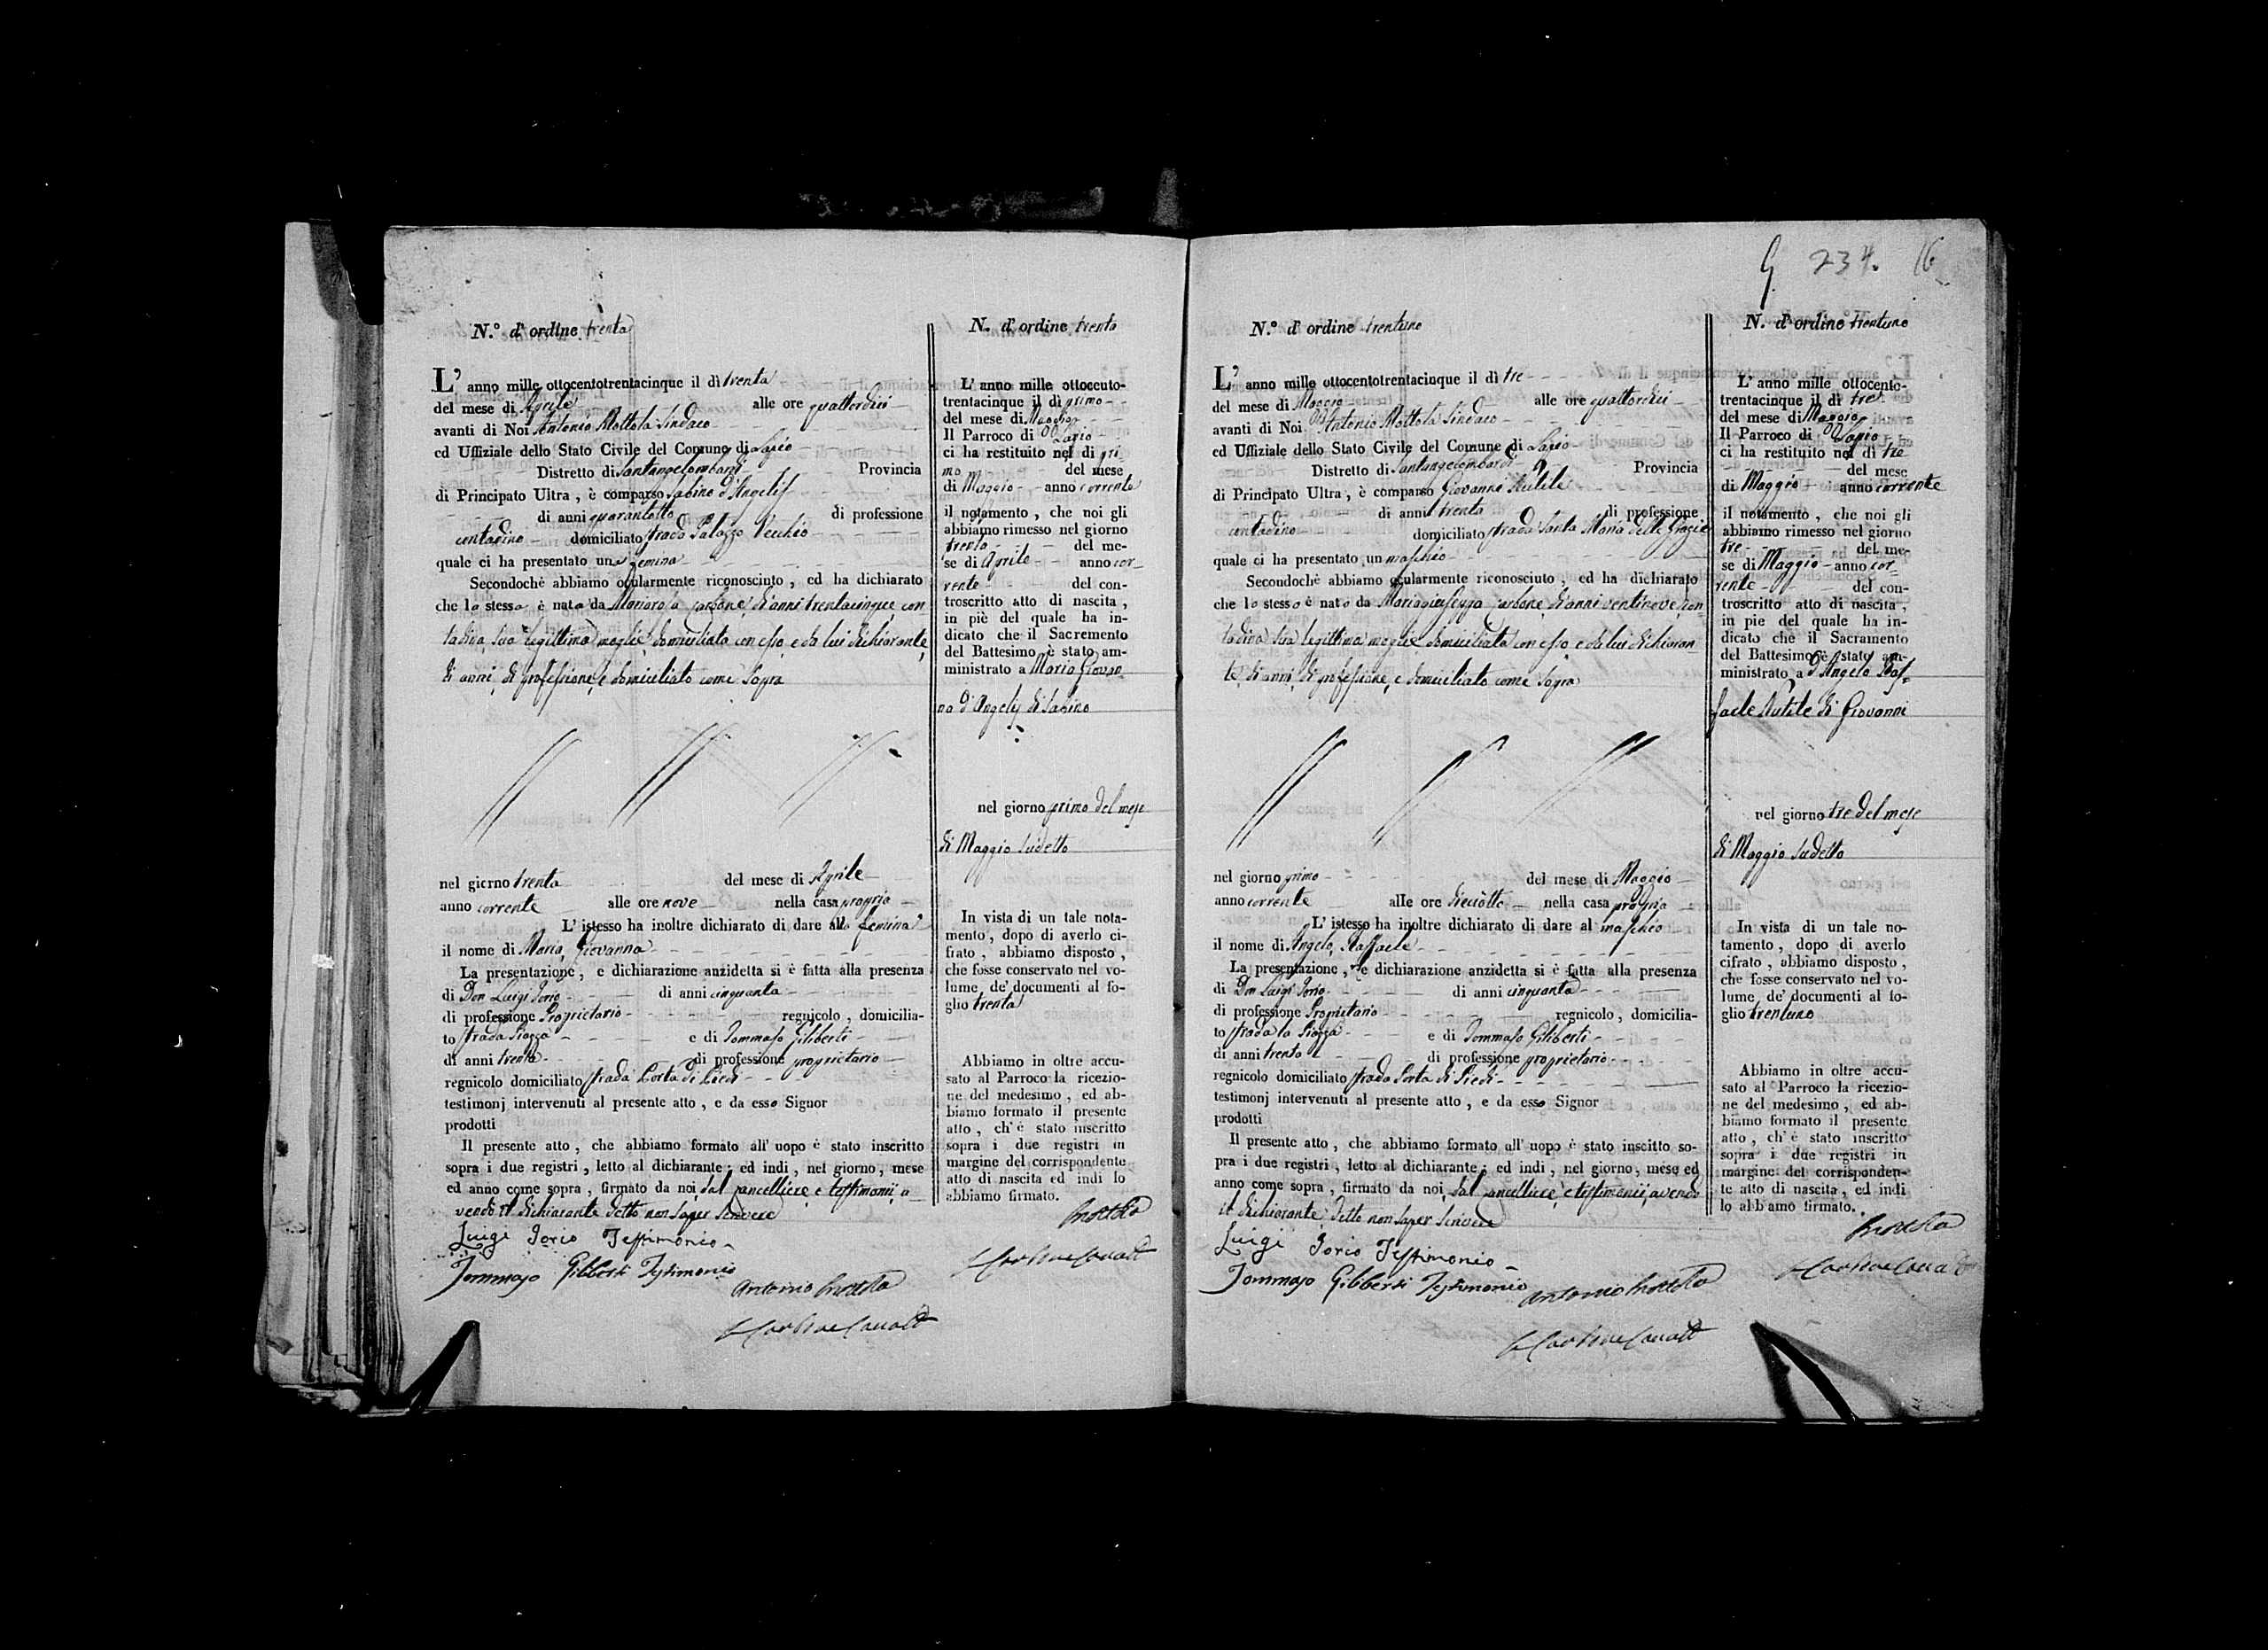 N.º d'ordine trenta
L'anno mille ottocentotrentacinque il dì trenta
del mese di Aprile alle ore quattordici
avanti di Noi Antonio Mottola Sindaco
ed Uffiziale dello Stato Civile del Comune di Lapio
Distretto di Santangelombardi Provincia
di Principato Ultra, è comparso Sabino d'Angelis
di anni quarantotto di professione
contadino domiciliato strada Palazzo Vecchio
quale ci ha presentato una femina
Secondochè abbiamo ocularmente riconosciuto, ed ha dichiarato
che la stessa è nata da Carbone di anni trentacinque con
tadina, sua legittima moglie, domiciliata con esso, e da lui dichiarante
di anni, di professione, e domiciliato come sopra
nel giorno trenta del mese di Aprile
anno corrente alle ore nove nella casa propria
L'istesso ha inoltre dichiarato di dare alla femina
il nome di Maria, Giovanna
La presentazione, e dichiarazione anzidetta si è fatta alla presenza
di Don Luigi Iorio di anni cinquanta
di professione Proprietario regnicolo, domicilia-
to strada Piazza e di Tommaso Giliberti
di anni trenta di professione proprietario
regnicolo domiciliato strada Porta di Piedi
testimonj intervenuti al presente atto, e da esso Signor
prodotti
Il presente atto, che abbiamo formato all' uopo è stato inscritto
sopra i due registri, letto al dichiarante; ed indi, nel giorno, mese
ed anno come sopra, firmato da noi, dal cancelliere, e testimonii, a
vendo il dichiarante detto non saper scrivere
Luigi Iorio Testimonio
Tommaso Giliberti Testimonio
Antonio Mottola
N. d'ordine trenta
L'anno mille ottocento-
trentacinque il dì primo
del mese di Maggio
Il Parroco di Lapio
ci ha restituito nel dì pri-
mo del mese
di Maggio anno corrente
il notamento, che noi gli
abbiamo rimesso nel giorno
trenta del me-
se di Aprile anno cor-
rente del con-
troscritto atto di nascita,
in piè del quale ha in-
dicato che il Sacremento
del Battesimo è stato am-
ministrato a Maria Giovan-
na d'Angelis di Sabino
nel giorno primo del mese
di Maggio sudetto
In vista di un tale nota-
mento, dopo di averlo ci-
frato, abbiamo disposto,
che fosse conservato nel vo-
lume de' documenti al fo-
glio trenta
Abbiamo in oltre accu-
sato al Parroco la ricezio-
ne del medesimo, ed ab-
biamo formato il presente
atto, ch'è stato inscritto
sopra i due registri in
margine del corrispondente
atto di nascita ed indi lo
abbiamo firmato.
Mottola
734. 16
N.º d'ordine trentuno
L'anno mille ottocentotrentacinque il dì tre
del mese di Maggio alle ore quattordici
avanti di Noi Antonio Mottola Sindaco
ed Uffiziale dello Stato Civile del Comune di Lapio
Distretto di Santangelombardi Provincia
di Principato Ultra, è comparso Giovanni
di anni trenta di professione
contadino domiciliato strada Santa Maria delle Grazie
quale ci ha presentato un maschio
Secondochè abbiamo ocularmente riconosciuto, ed ha dichiarato
che lo stesso è nato da Mariagiuseppa Carbone, di anni ventinove, con-
tadina sua legittima moglie domiciliata con esso, e da lui dichiaran-
te, di anni, di professione, e domiciliato come sopra
nel giorno primo del mese di Maggio
anno corrente alle ore dieciotto nella casa propria
L'istesso ha inoltre dichiarato di dare al maschio
il nome di Angelo, Raffaele
La presentazione, e dichiarazione anzidetta si è fatta alla presenza
di Don Luigi Iorio di anni cinquanta
di professione Proprietario regnicolo, domicilia-
to strada la Piazza e di Tommaso Giliberti
di anni trenta di professione proprietario
regnicolo domiciliato strada Porta di Piedi
testimonj intervenuti al presente atto, e da esso Signor
prodotti
Il presente atto, che abbiamo formato all' uopo è stato inscitto so-
pra i due registri, letto al dichiarante; ed indi, nel giorno, mese ed
anno come sopra, firmato da noi, dal cancelliere, e testimonii, avendo
il dichiarante detto non saper scrivere
Luigi Iorio Testimonio
Tommaso Giliberti Testimonio
Antonio Mottola
N. d'ordine trentuno
L'anno mille ottocento-
trentacinque il dì tre
del mese di Maggio
Il Parroco di Lapio
ci ha restituito nel dì tre
del mese
di Maggio anno corrente
il notamento, che noi gli
abbiamo rimesso nel giorno
tre del me-
se di Maggio anno cor-
rente del con-
troscritto atto di nascita,
in pie del quale ha in-
dicato che il Sacramento
del Battesimo è stato am-
ministrato a d'Angelo Raf-
faele di Giovanni
nel giorno tre del mese
di Maggio sudetto
In vista di un tale no-
tamento, dopo di averlo
cifrato, abbiamo disposto,
che fosse conservato nel vo-
lume de' documenti al fo-
glio trentuno
Abbiamo in oltre accu-
sato al Parroco la ricezio-
ne del medesimo, ed ab-
biamo formato il presente
atto, ch'è stato inscritto
sopra i due registri in
margine del corrisponden-
te atto di nascita, ed indi
lo abbiamo firmato.
Mottola